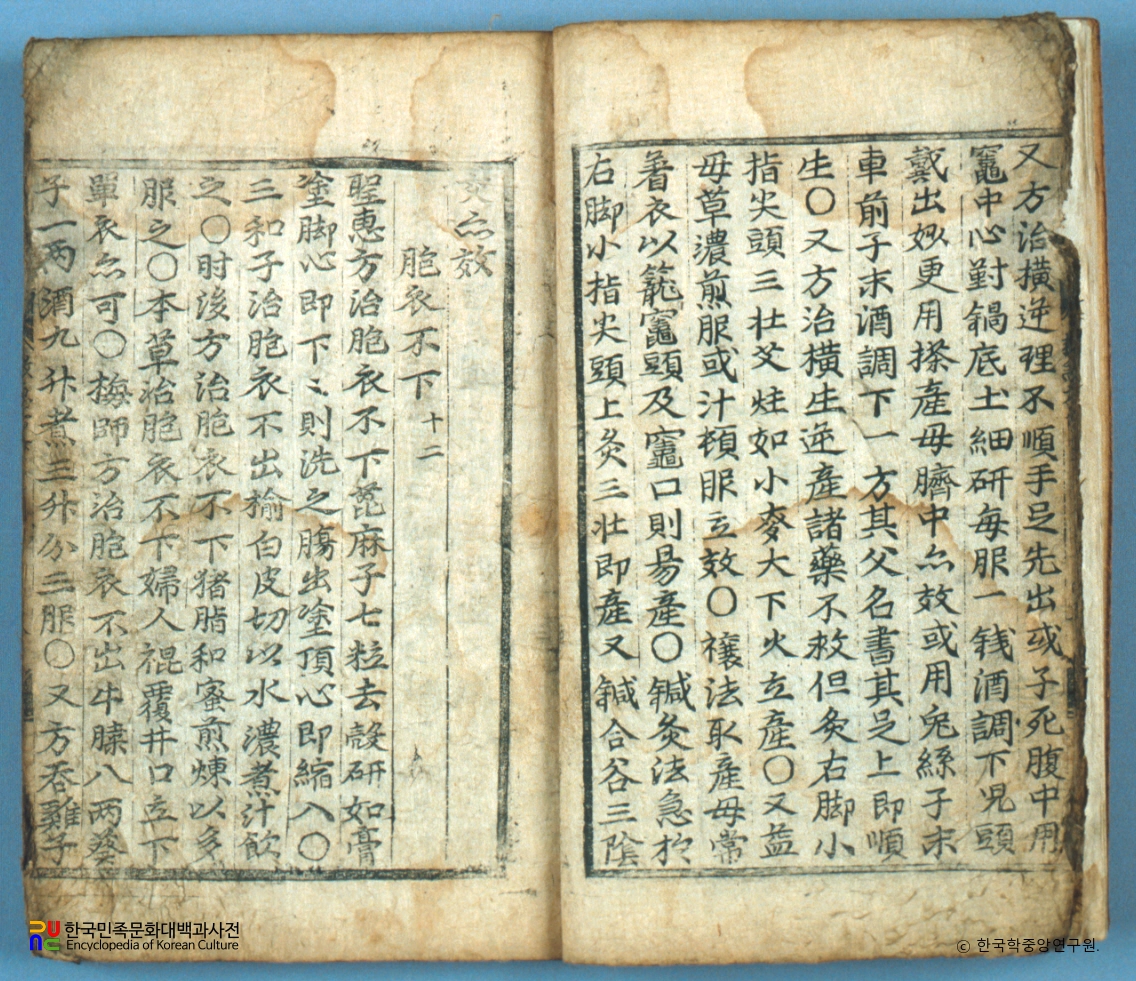 又方治橫逆理不順手足先出或子死腹中用
竈中心對鍋底土細研每服一錢酒調下児頭
戴出妙更用搽產母臍中亦效或用兔絲子末
車前子末酒調下一方其父名書其足上即順
生○又方治橫生逆產諸藥不救但灸右脚小
指尖頭三壮艾炷如小麥大下火立產○又益
母草濃煎服或汁頓服立效○禳法取產母常
着衣以籠竈頭及竈口則易產○鍼灸法急於
右脚小指尖頭上灸三壮即產又鍼合谷三陰
交亦效
胞衣不下 十二
聖惠方治胞衣不下萞麻子七粒去殼研如膏
塗脚心即下〻則洗之腸出塗頂心即縮入○
三和子治胞衣不出榆白皮切以水濃煮汁飲
之○肘後方治胞衣不下猪脂和蜜煎煉以多
服之○本草治胞衣不下婦人裩覆井口立下
單衣亦可○梅師方治胞衣不出牛膝八兩葵
子一兩酒九升煮三升分三服○又方吞雞子
한국민족문화대백과사전
Encyclopedia of Korean Culture
© 한국학중앙연구원.